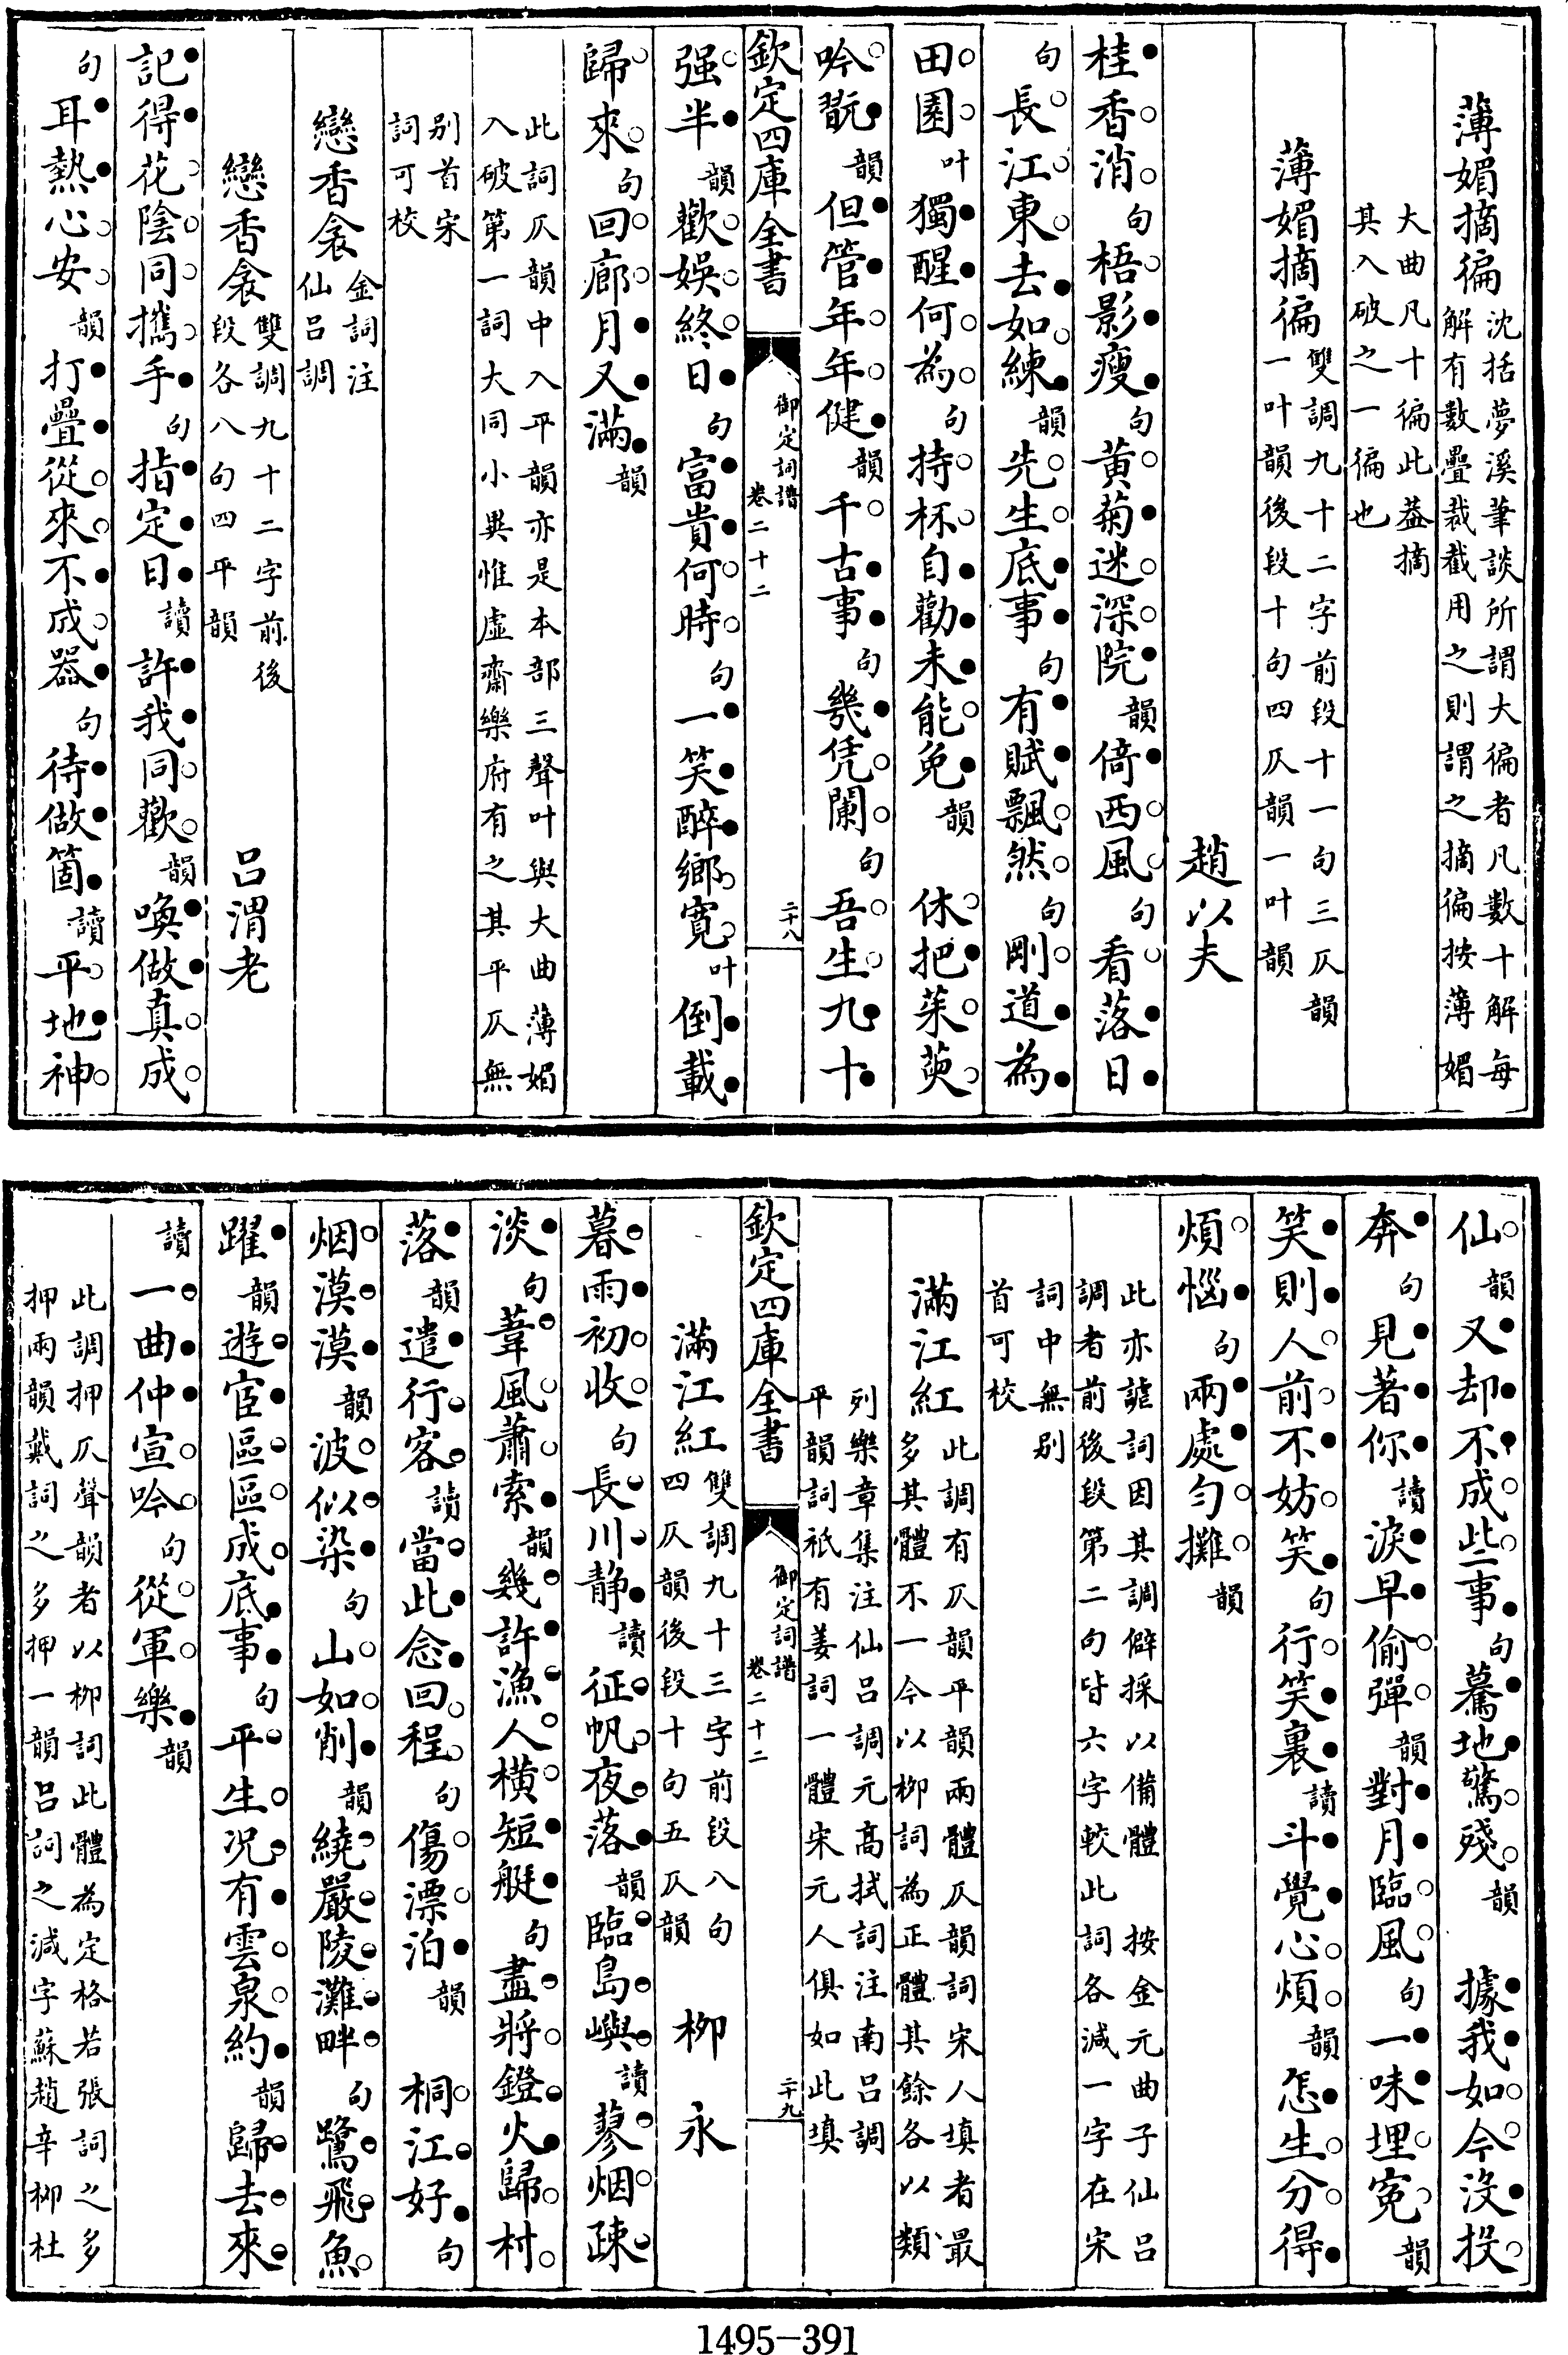 薄媚摘徧沈括夢溪筆談所謂大徧者凡數十解每
解有數疊裁截用之則謂之摘徧按薄媚
大曲凡十徧此葢摘
其入破之一徧也
薄媚摘徧雙調九十二字前段十一句三仄韻
一叶韻後段十句四仄韻一叶韻
趙以夫
桂香消句梧影瘦句黄菊迷深院韻倚西風句看落日
句長江東去如練韻先生底事句有賦飄然句剛道為
田園叶獨醒何為句持杯自勸未能免韻　休把茱萸
吟翫韻但管年年健韻千古事句幾凭闌句吾生九十
欽定四庫全書
御定詞譜
卷二十二
二十八
强半韻歡娛終日句富貴何時句一笑醉鄉寛叶倒載
歸來句回廊月又滿韻
此詞仄韻中入平韻亦是本部三聲叶與大曲薄媚
入破第一詞大同小異惟虛齋樂府有之其平仄無
别首宋
詞可校
戀香衾金詞注
仙呂調
戀香衾雙調九十二字前後
段各八句四平韻
呂渭老
記得花陰同攜手句指定日讀許我同歡韻喚做真成
句耳熱心安韻打疊從來不成器句待做箇讀平地神
仙韻又却不成些事句驀地驚殘韻　據我如今沒投
奔句見著你讀淚早偷彈韻對月臨風句一味埋寃韻
笑則人前不妨笑句行笑裏讀斗覺心煩韻怎生分得
煩惱句兩處勻攤韻
此亦謔詞因其調僻採以備體　按金元曲子仙呂
調者前後段第二句皆六字較此　詞各減一字在宋
詞中無别
首可校
滿江紅此調有仄韻平韻兩體仄韻詞宋人填者最
多其體不一今以柳詞為正體其餘各以類
列樂章集注仙呂調元高拭詞注南呂調
平韻詞祇有姜詞一體宋元人俱如此填
欽定四庫全書
御定詞譜
卷二十二
二十九
滿江紅雙調九十三字前段八句
四仄韻後段十句五仄韻
柳　永
暮雨初收句長川静讀征帆夜落韻臨島嶼讀蓼烟疎
淡句葦風蕭索韻幾許漁人横短艇句盡將鐙火歸村
落韻遣行客讀當此念回程句傷漂泊韻　桐江好句
烟漠漠韻波似染句山如削韻繞嚴陵灘畔句鷺飛魚
躍韻遊宦區區成底事句平生況有雲泉約韻歸去來
讀一曲仲宣吟句從軍樂韻
此調押仄聲韻者以柳詞此體為定格若張詞之多
押兩韻戴詞之多押一韻呂詞之減字蘇趙辛柳杜
1495-391